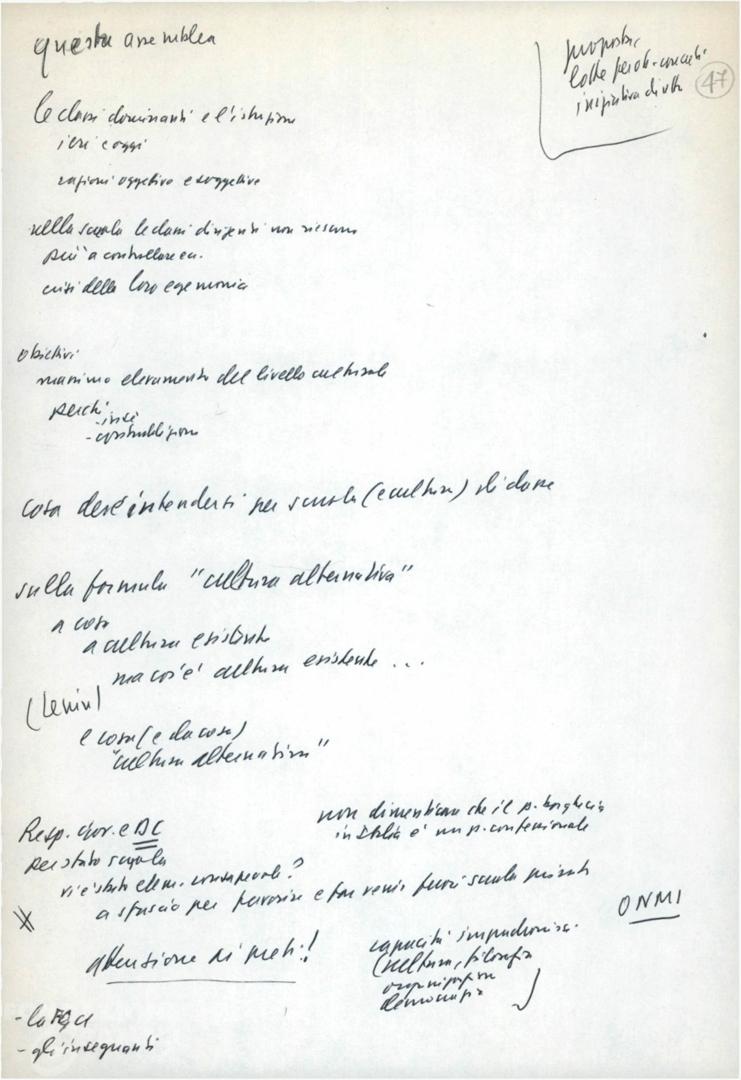 questa assemblea
proposta,
lotte per ob. concreti.
iniziativa di vitt
47
le classi dominanti e l'istruzione
ieri e oggi
ragioni oggettive e soggettive
nella scuola le classi dirigenti non riescono
più a controllare ecc.
crisi della loro egemonia
obiettivi
massimo elevamento del livello culturale
perché
- in sé
- contraddizione
cosa deve intendersi per scuola (e cultura) di classe
sulla formula "cultura alternativa"
a cosa
a cultura esistente
ma cos'è cultura esistente ...
(Lenin)
e cosa (e da cosa)
"cultura alternativa"
Resp. gov. e DC
per stato scuola
vi è stato elem. consapevole?
a sfascio per favorire e far venir fuori scuola privata
non dimenticare che il p. borghese
in Italia è un p. confessionale
ONMI
attenzione ai preti!
capacità
(cultura, filosofia
organizzazione
democrazia
- la FGCI
- gli insegnanti